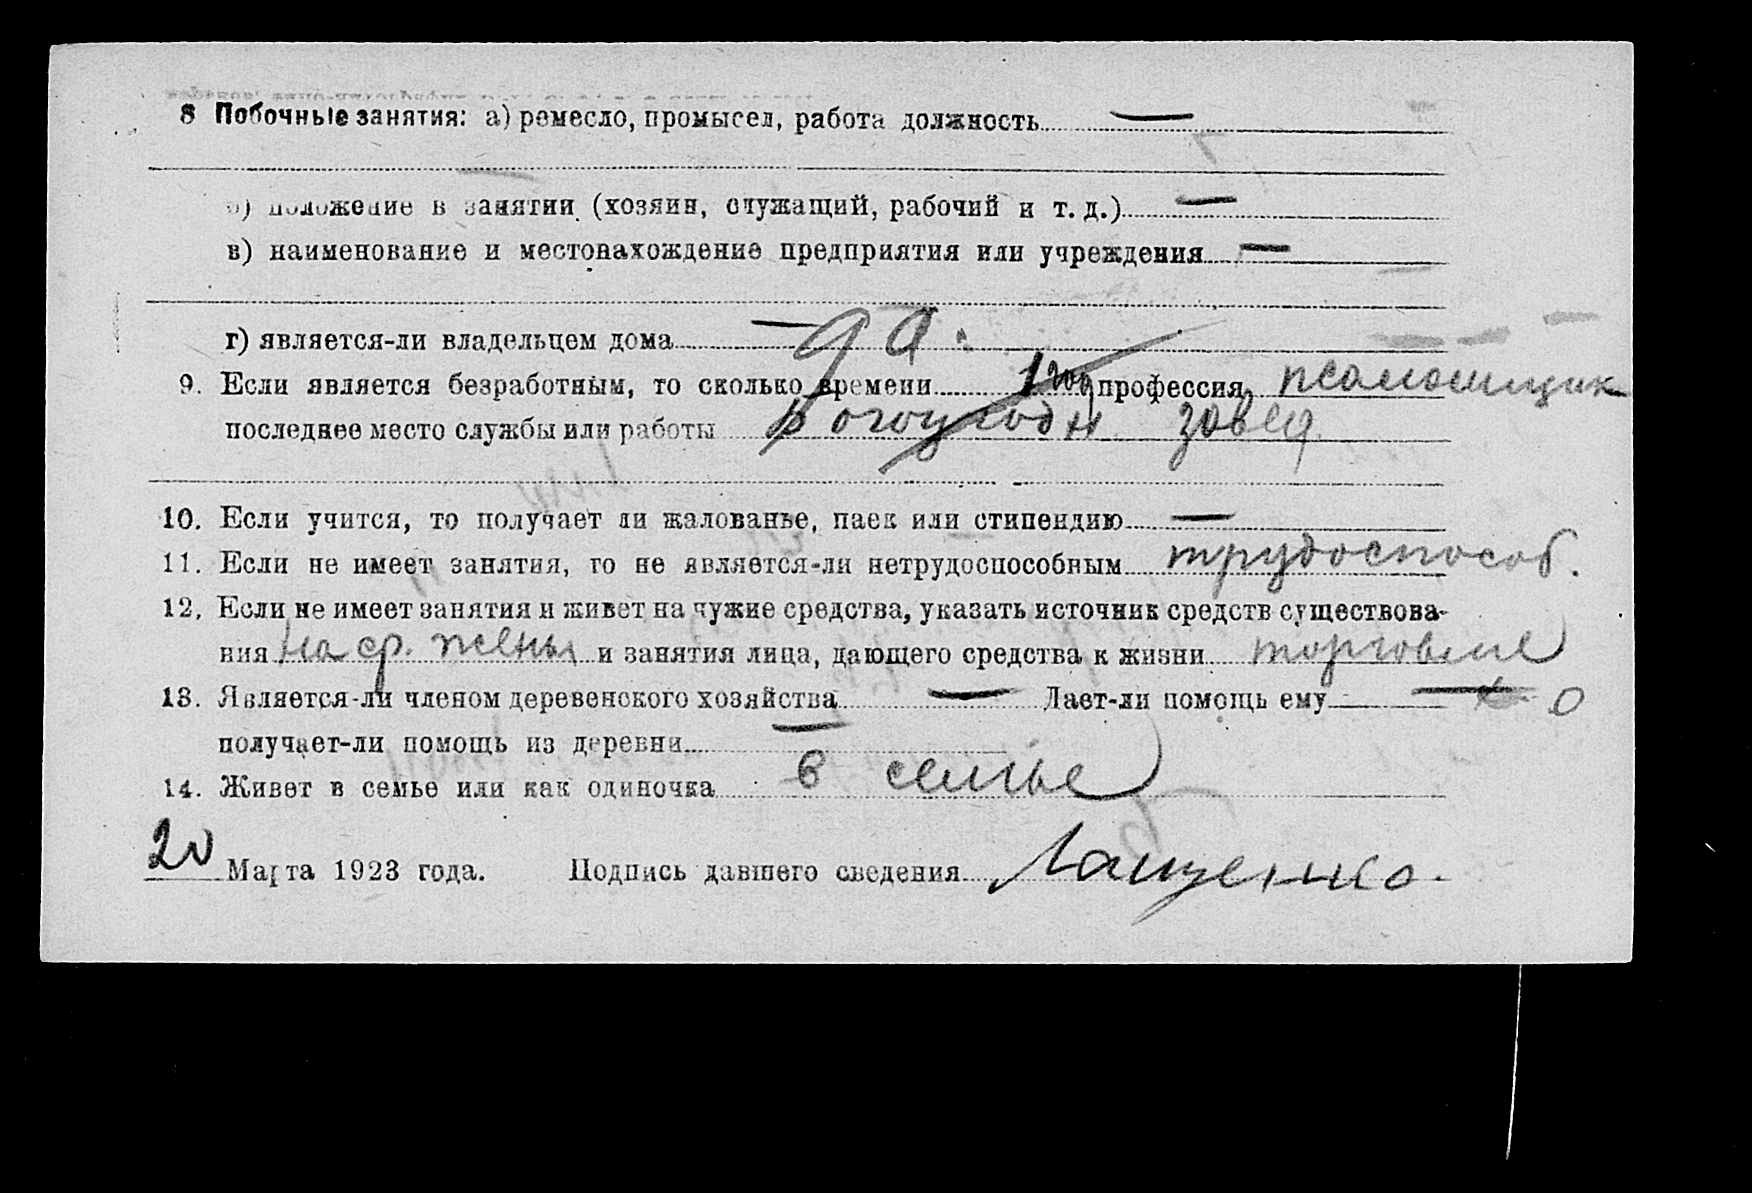 8 Побочные занятия: а) ремесло, промысел, работа должность —
б) положение в занятии (хозяин, служащий, рабочий и т. д.) —
в) наименование и местонахождение предприятия или учреждения —
г) является-ли владельцем дома — да.
9. Если является безработным, то сколько времени 1 год профессия псаломщик
последнее место службы или работы Богоугодн завед.
10. Если учится, то получает ли жалованье, паек или стипендию —
11. Если не имеет занятия, то не является-ли нетрудоспособным трудоспособ.
12. Если не имеет занятия и живет на чужие средства, указать источник средств существова-
ния на ср. жены и занятия лица, дающего средства к жизни торговле
13. Является-ли членом деревенского хозяйства — Дает-ли помощь ему —
получает-ли помощь из деревни —
14. Живет в семье или как одиночка в семье
20 Марта 1923 года. Подпись давшего сведения Лащенко.